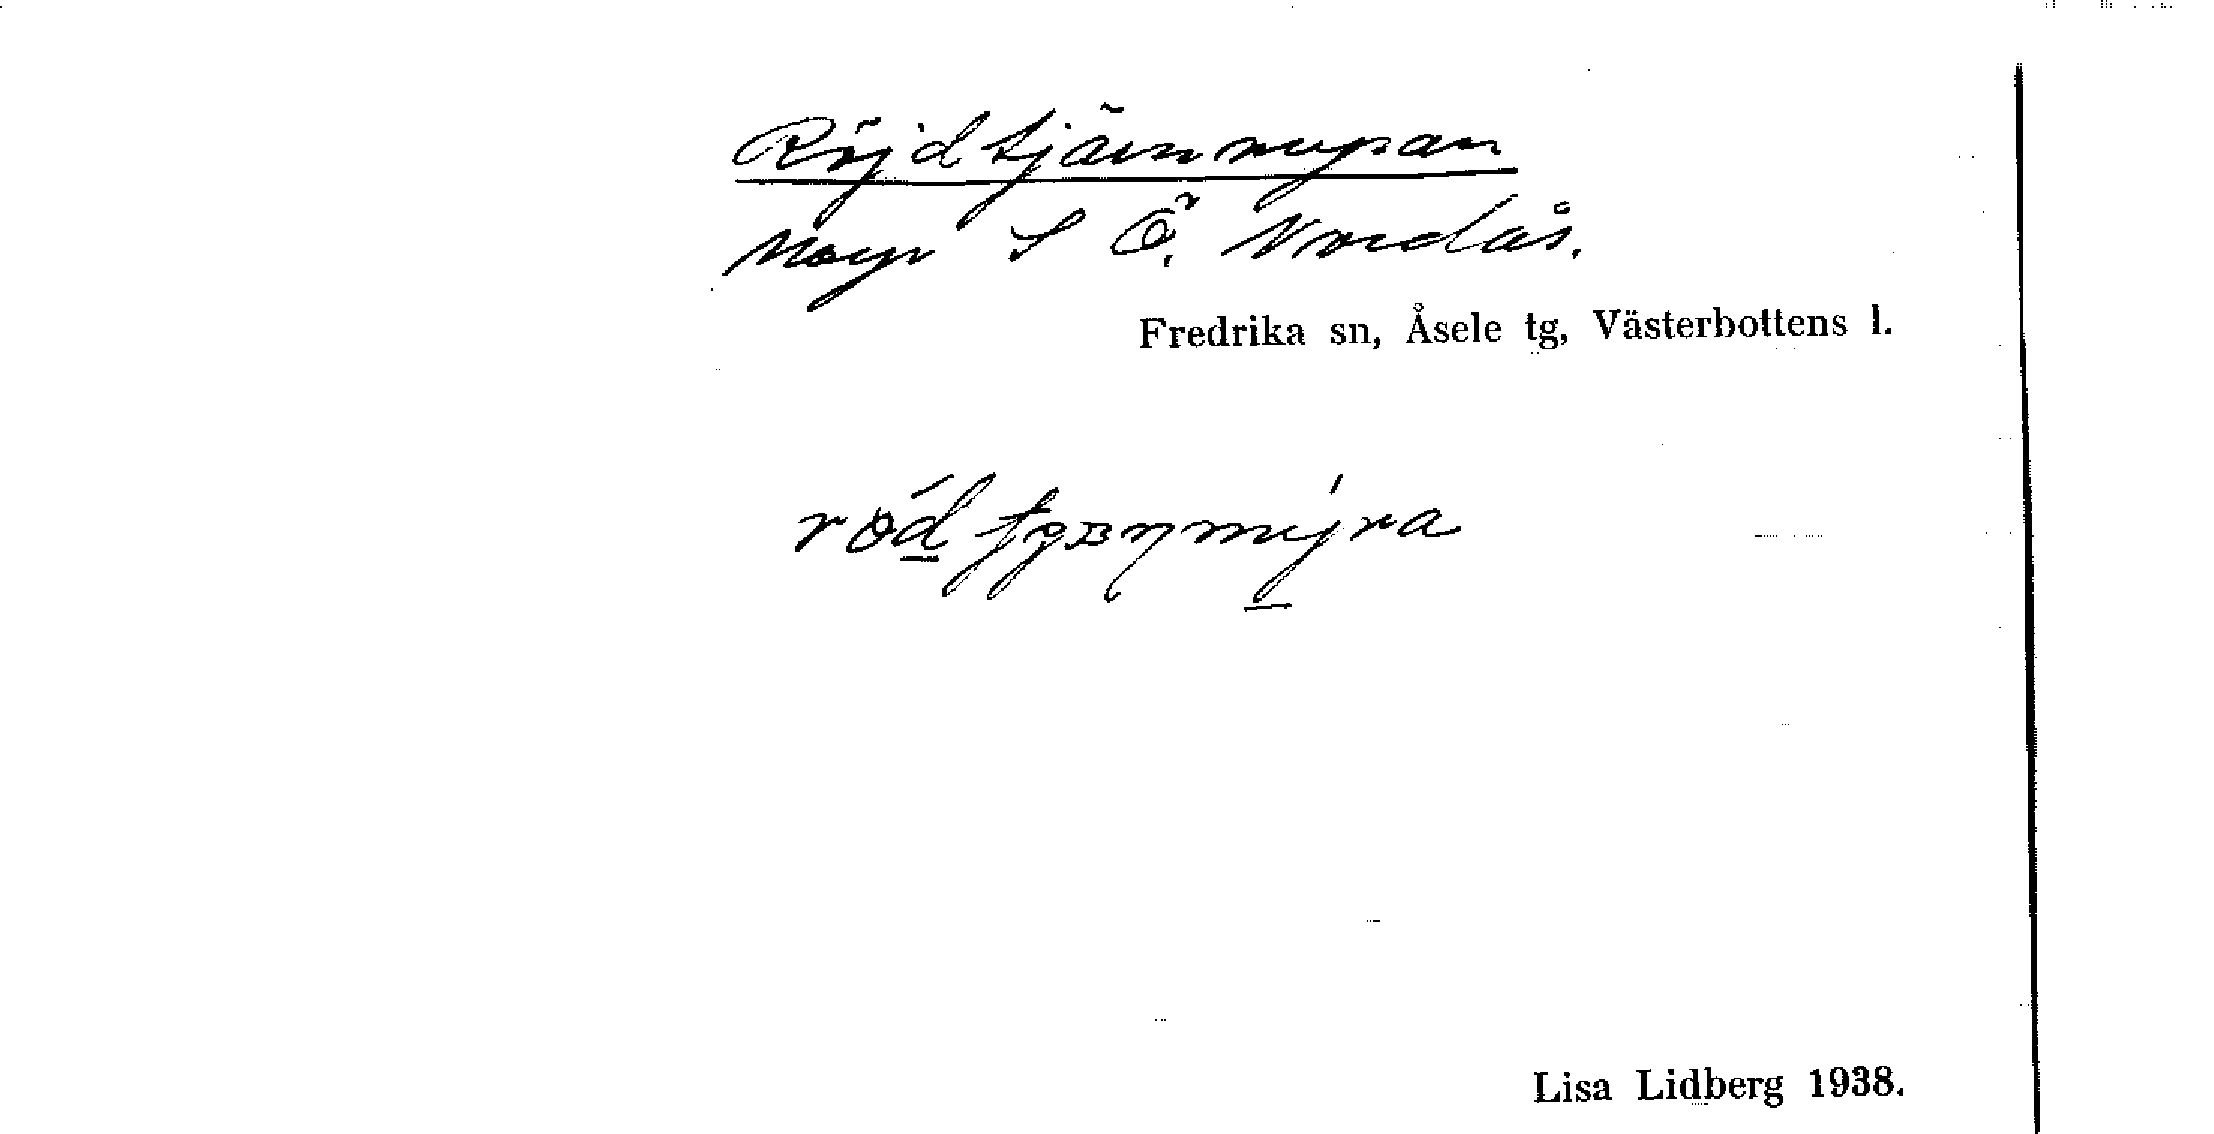 Röjdtjärnmyran
Myr S Ö. Nordås.
Fredrika sn, Åsele tg, Västerbottens l.
Lisa Lidberg 1938.